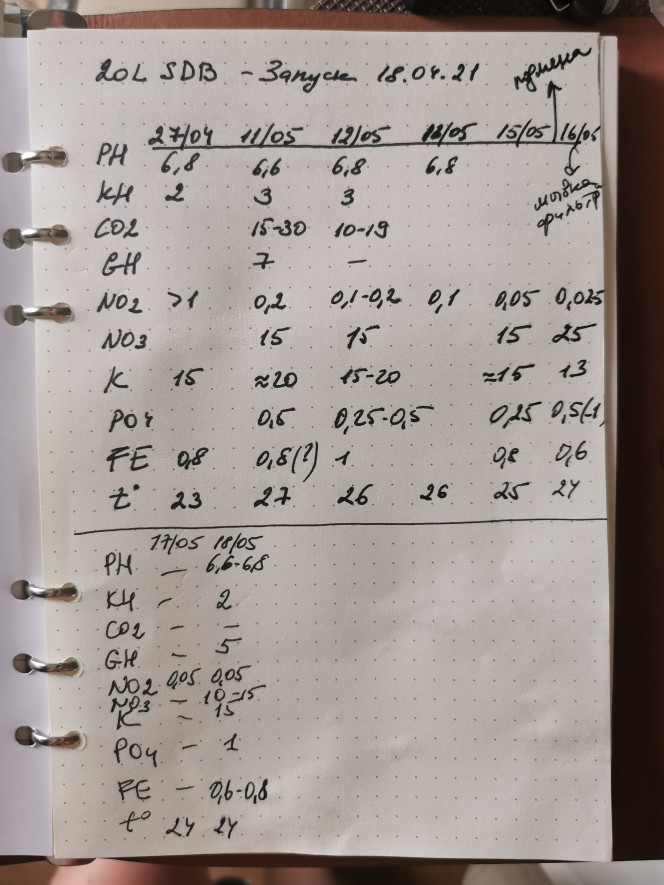 20L SDB - Запуск 18.04.21
подмена
27/04 11/05 12/05 13/05 15/05 16/05
PH 6,8 6,6 6,8 6,8
мойка
фильтр
KH 2 3 3
CO2 15-30 10-19
GH 7 —
NO2 >1 0,2 0,1-0,2 0,1 0,05 0,025
NO3 15 15 15 25
K 15 ≈20 15-20 ≈15 13
PO4 0,5 0,25-0,5 0,25 0,5(-1)
FE 0,8 0,8(?) 1 0,8 0,6
t° 23 27 26 26 25 24
17/05 18/05
PH — 6,6-6,8
KH - 2
CO2 - -
GH - 5
NO2 0,05 0,05
NO3 - 10-15
K - 15
PO4 - 1
FE - 0,6-0,8
t° 24 24